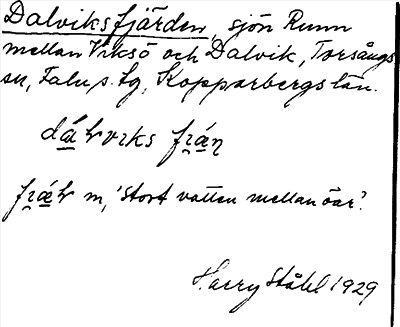 Dalviksfjärden, sjön Runn
mellan Viksö och Dalvik, Torsångs
sn, Falu s. tg, Kopparbergs län.
m, 'stort vatten mellan öar'.
Harry Ståhl 1929